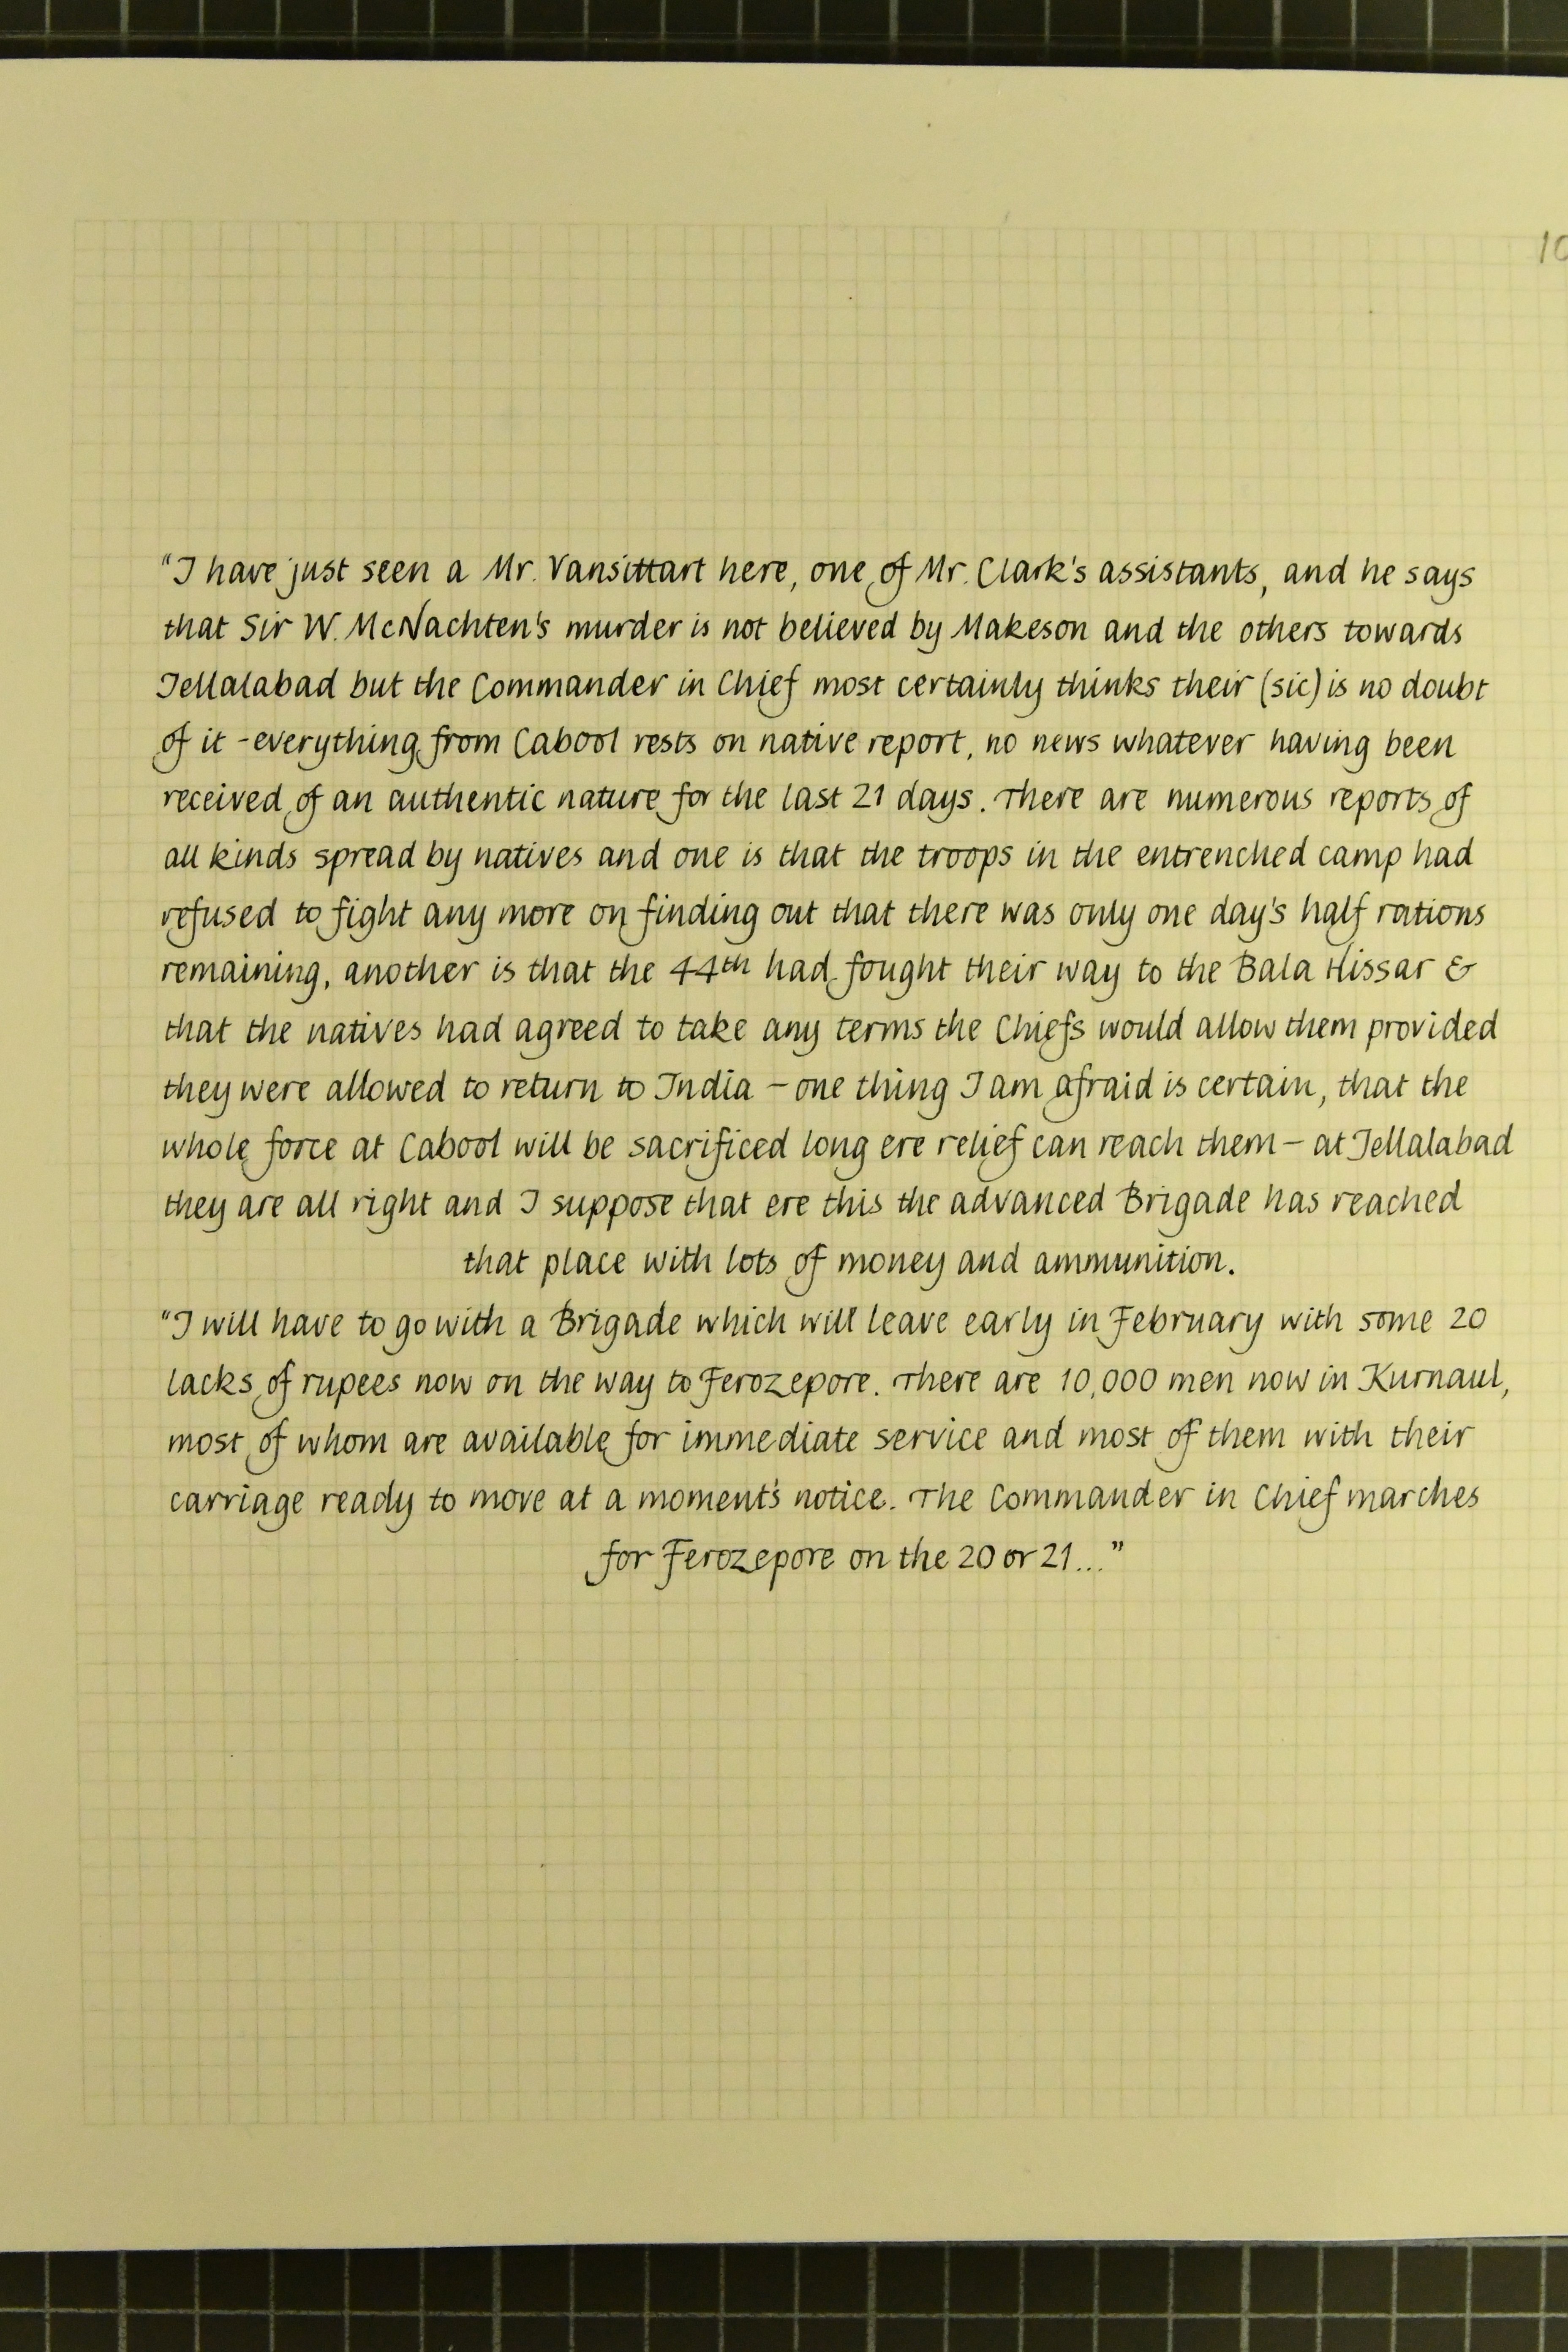 10
"I have just seen a Mr. Vansittart here, one of Mr. Clark's assistants, and he says
that Sir W. McNachten's murder is not believed by Makeson and the others towards
Jellalabad but the Commander in Chief most certainly thinks their (sic) is no doubt
of it - everything from Cabool rests on native report, no news whatever having been
received of an authentic nature for the last 21 days. There are numerous reports of
all kinds spread by natives and one is that the troops in the entrenched camp had
refused to fight any more on finding out that there was only one day's half rations
remaining, another is that the 44th had fought their way to the Bala Hissar &
that the natives had agreed to take any terms the Chiefs would allow them provided
they were allowed to return to India – one thing I am afraid is certain, that the
whole force at Cabool will be sacrificed long ere relief can reach them – at Jellalabad
they are all right and I suppose that ere this the advanced Brigade has reached
that place with lots of money and ammunition.
"I will have to go with a Brigade which will leave early in February with some 20
lacks of rupees now on the way to Ferozepore. There are 10,000 men now in Kurnaul,
most of whom are available for immediate service and most of them with their
carriage ready to move at a moment's notice. The Commander in Chief marches
for Ferozepore on the 20 or 21..."